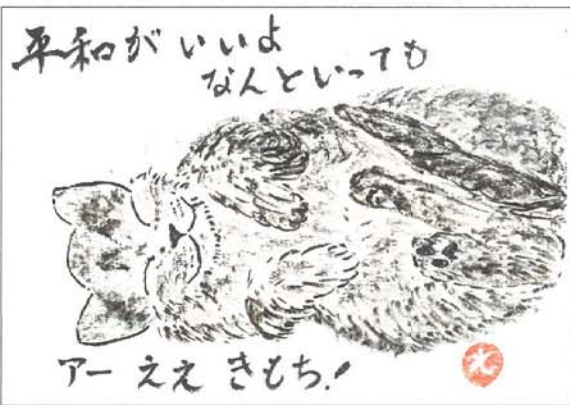 平和が いいよ
なんといっても
アー ええ きもち!